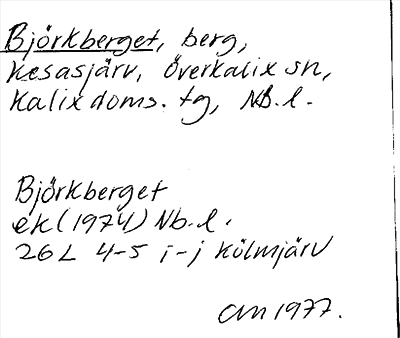 Björkberget, berg,
Kesasjärv, Överkalix sn,
Kalix doms. tg, Nb.l.
Björkberget
ek (1974) Nb.l.
26 L 4-5 i-j Kölmjärv
CM 1977.